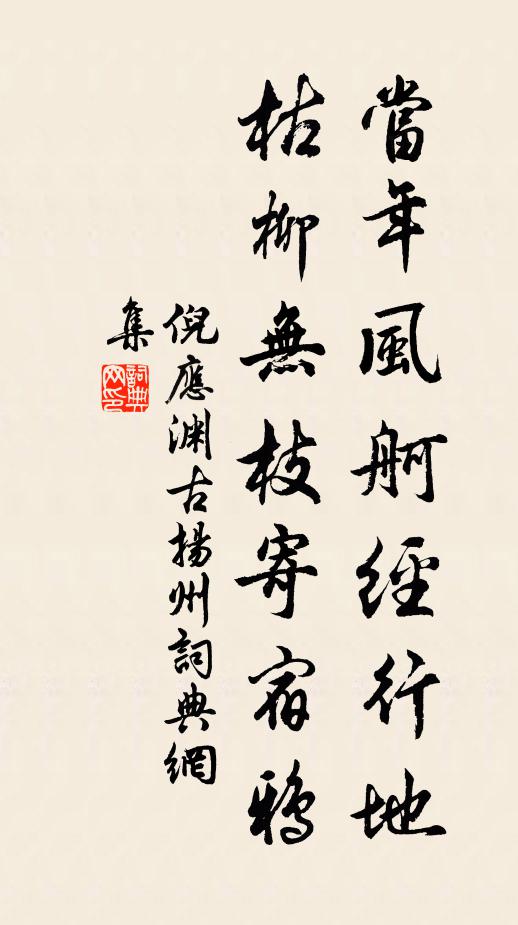 當年風舸經行地
枯柳無枝寄宿鴉
倪應淵古揚州詞典網
集
詞典网印